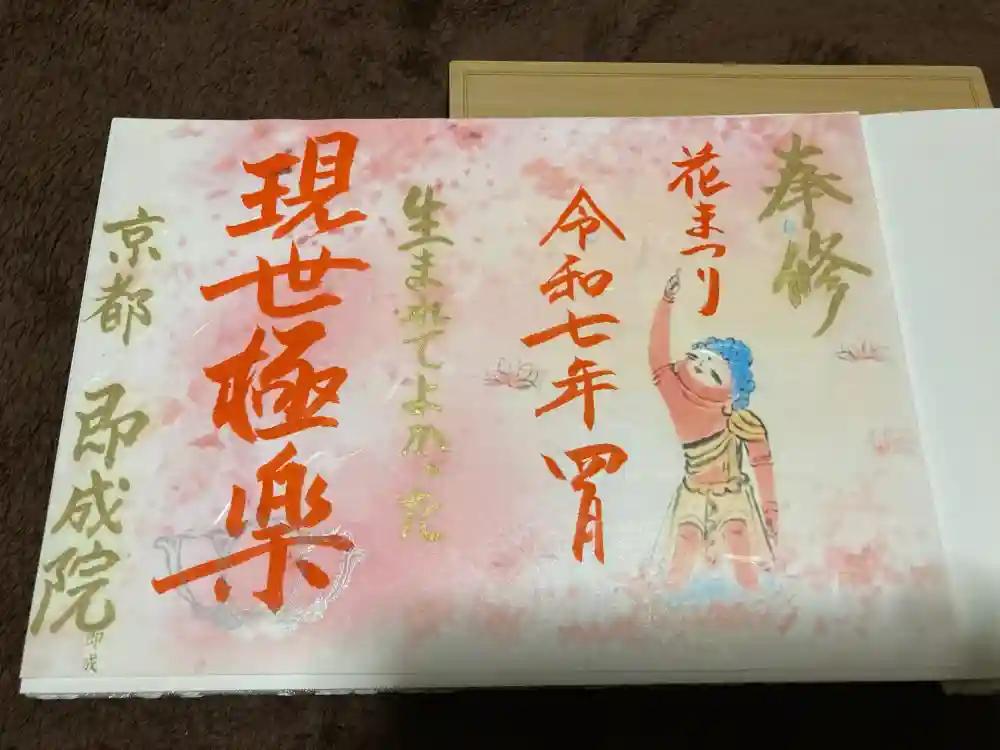 奉修
花まつり
令和七年四月
生まれてよかった
現世極楽
京都 即成院
即成